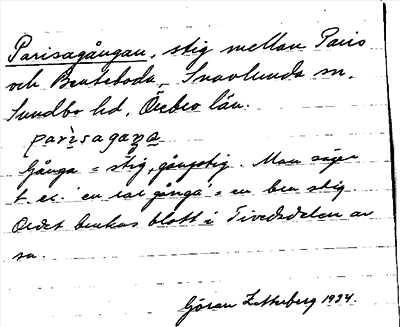 Parisagångan, stig mellan Paris
och Benteboda, Snavlunda sn.
Sundbo hd, Örebro län.
parisagaŋa
Gånga = stig, gångstig. Man säger
t. ex. 'en rar gånga' = en bra stig
Ordet brukas blott i Tivedsdelen av
sn.
Göran Zetterberg 1934.